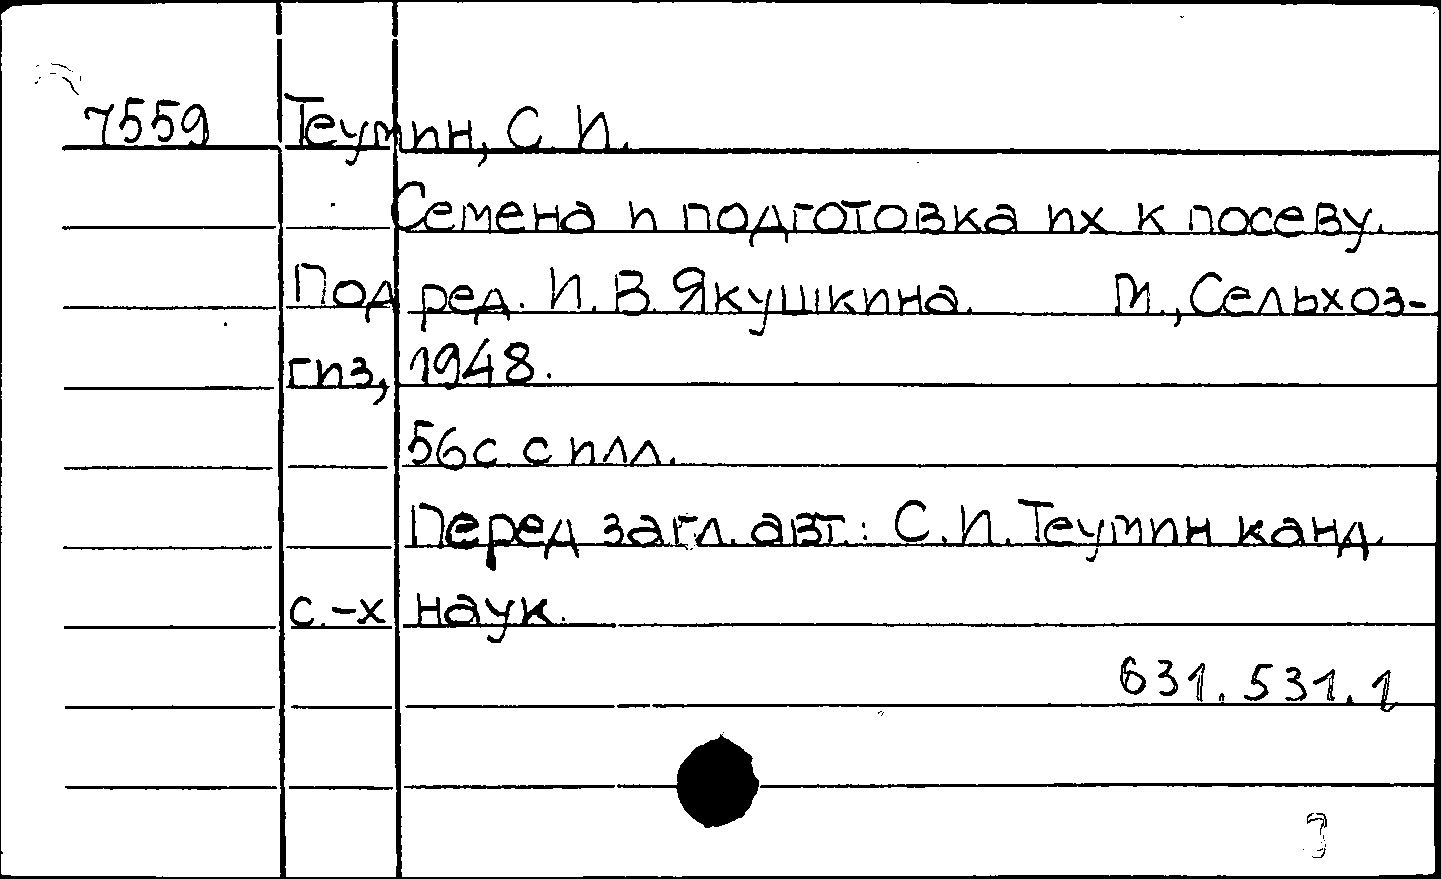 7559 Теумин, С. И.
Семена и подготовка их к посеву.
Под ред. И. В. Якушкина. М., Сельхоз-
гиз, 1948.
56 с. с илл.
Перед загл. авт.: С. И. Теумин канд.
с.-х наук.
631.531.1